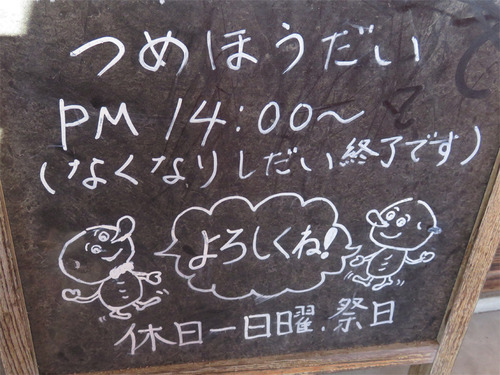 つめほうだい
PM 14:00～
(なくなりしだい終了です)
よろしくね!
休日ー日曜.祭日